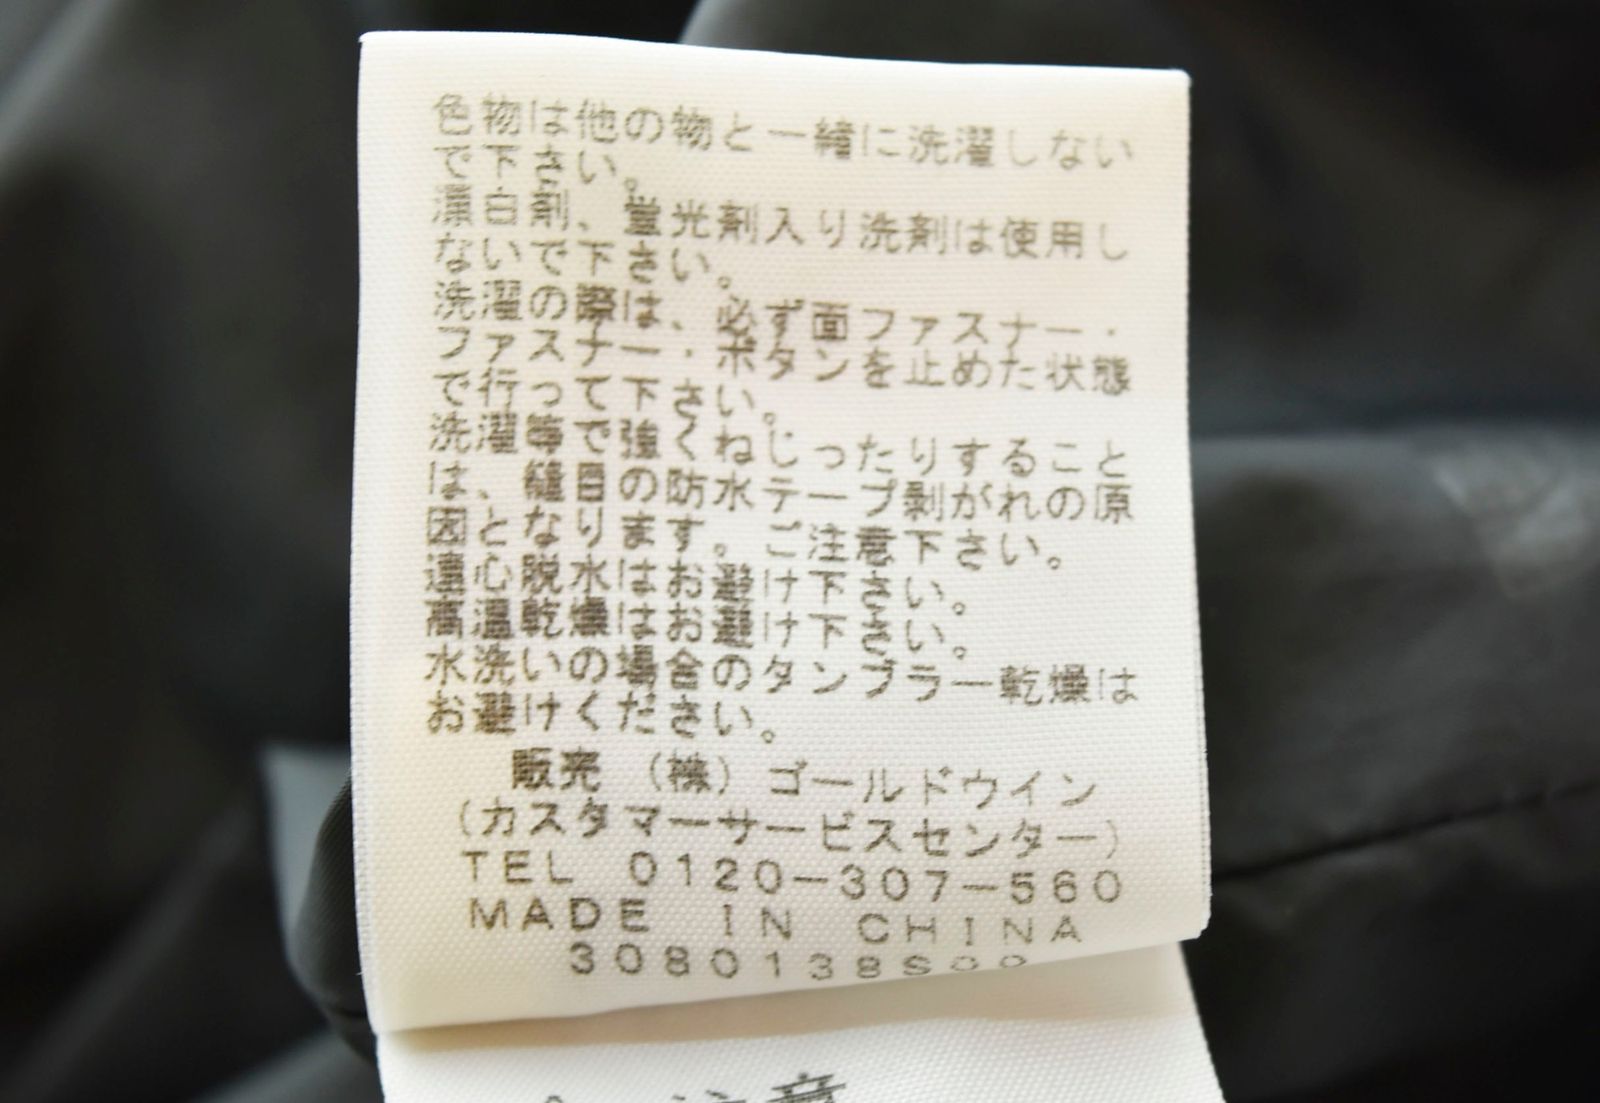 色物は他の物と一緒に洗濯しない
で下さい。
漂白剤、蛍光剤入り洗剤は使用し
ないで下さい。
洗濯の際は、必ず面ファスナー・
ファスナー・ボタンを止めた状態
で行って下さい。
洗濯等で強くねじったりすること
は、縫目の防水テープ剥がれの原
因となります。ご注意下さい。
遠心脱水はお避け下さい。
高温乾燥はお避け下さい。
水洗いの場合のタンブラー乾燥は
お避けください。
販売 (株) ゴールドウイン
(カスタマーサービスセンター)
TEL 0120-307-560
MADE IN CHINA
注意